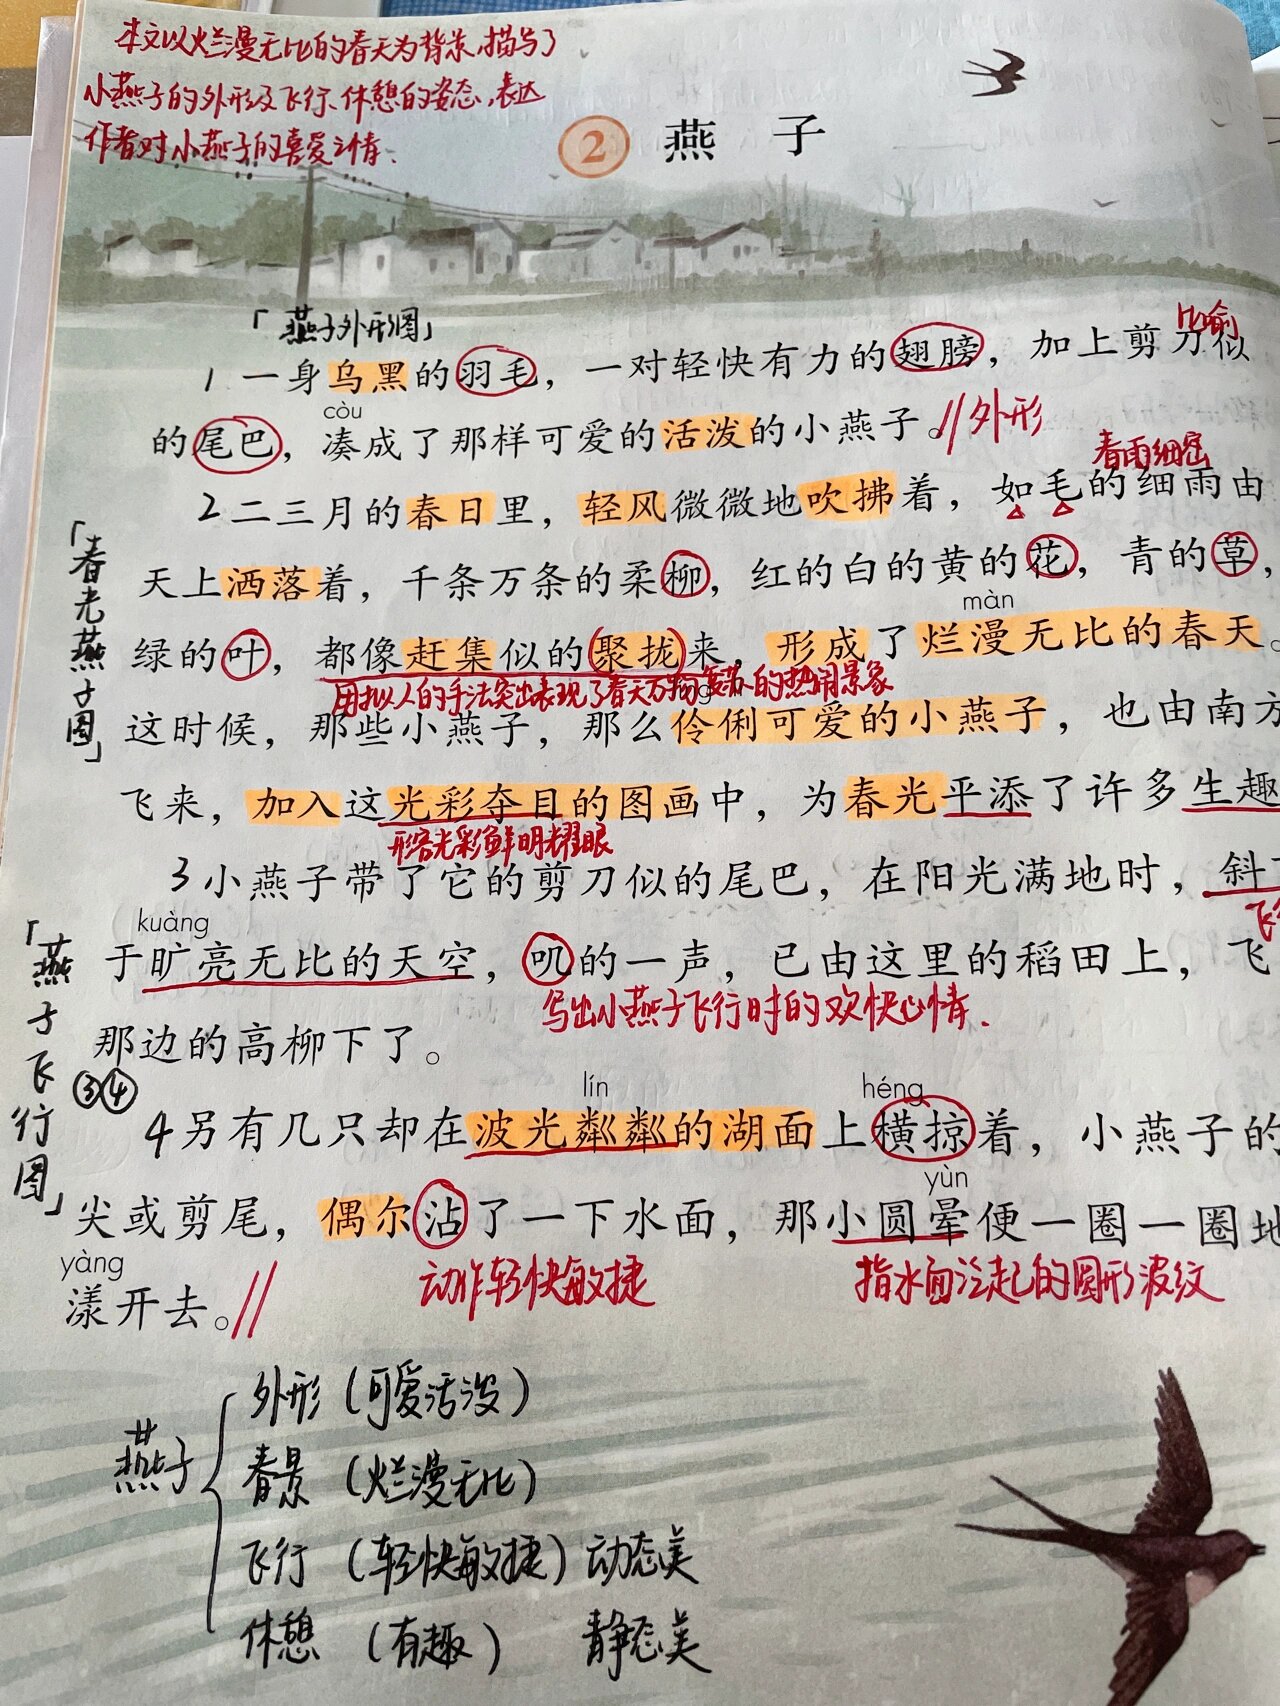 本文以烂漫无比的春天为背景,描写了
小燕子的外形及飞行、休憩的姿态,表达
作者对小燕子的喜爱之情.
2 燕子
「燕子外形图」
比喻
1 一身乌黑的羽毛，一对轻快有力的翅膀，加上剪刀似
còu
的尾巴，凑成了那样可爱的活泼的小燕子。// 外形
春雨细密
2 二三月的春日里，轻风微微地吹拂着，如毛的细雨由
「春光燕子图」
天上洒落着，千条万条的柔柳，红的白的黄的花，青的草，
màn
绿的叶，都像赶集似的聚拢来，形成了烂漫无比的春天。
用拟人的手法突出表现了春天万物复苏的热闹景象
这时候，那些小燕子，那么伶俐可爱的小燕子，也由南方
飞来，加入这光彩夺目的图画中，为春光平添了许多生趣
形容光彩鲜明耀眼
3 小燕子带了它的剪刀似的尾巴，在阳光满地时，斜
飞行
kuàng
「燕子飞行图」
于旷亮无比的天空，叽的一声，已由这里的稻田上，飞
写出小燕子飞行时的欢快心情.
那边的高柳下了。
③④
lín héng
4 另有几只却在波光粼粼的湖面上横掠着，小燕子的
yùn
尖或剪尾，偶尔沾了一下水面，那小圆晕便一圈一圈地
yàng
动作轻快敏捷 指水面泛起的圆形波纹
漾开去。//
燕子
外形（可爱活泼）
春景（烂漫无比）
飞行（轻快敏捷）动态美
休憩（有趣） 静态美